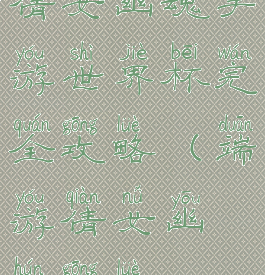 倩女幽魂手
yóu shì jiè bēi wán
游世界杯完
quán gōng lüè duān
全攻略（端
yóu qiàn nǚ yōu
游倩女幽
hún gōng lüè